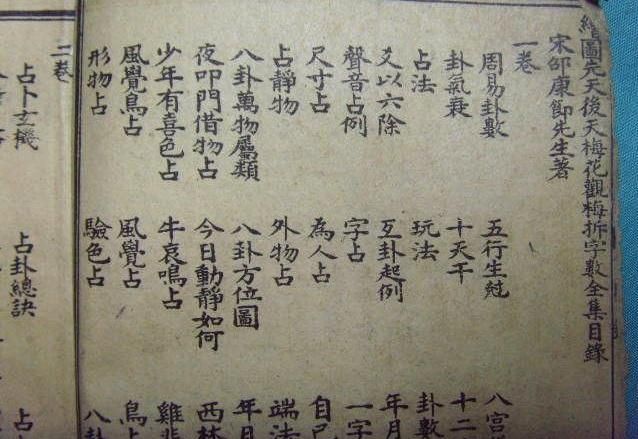 繪圖先天後天梅花觀梅拆字數全集目錄
宋邵康節先生著
一卷
周易卦數 五行生尅 八宮
卦氣衰 十天干 十二
占法 玩法 卦數
爻以六除 互卦起例 年月
聲音占例 字占 一字
尺寸占 為人占 自己
占靜物 外物占 端法
八卦萬物屬類 八卦方位圖 年日
夜叩門借物占 今日動靜如何 西林
少年有喜色占 牛哀鳴占 雞悲
風覺鳥占 風覺占 鳥
形物占 驗色占 八卦
二卷
占卜玄機 占卦總訣 占